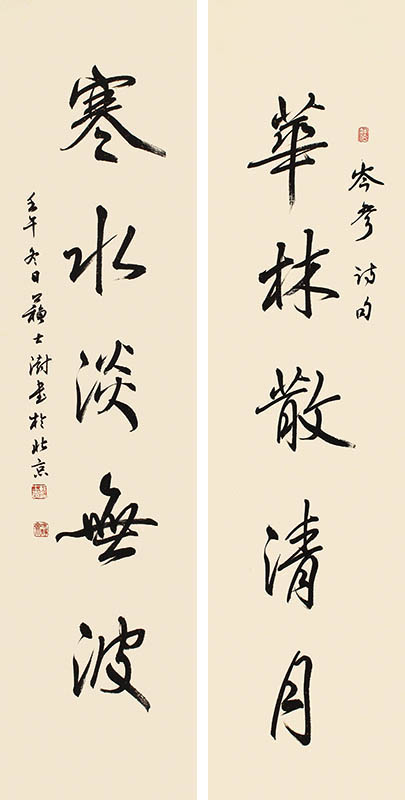 岑參詩句
華林散清月
寒水淡無波
壬午冬日蘇士澍書於北京